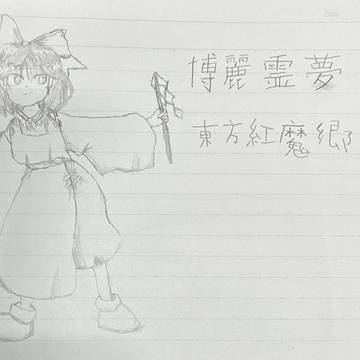 博麗霊夢
東方紅魔郷